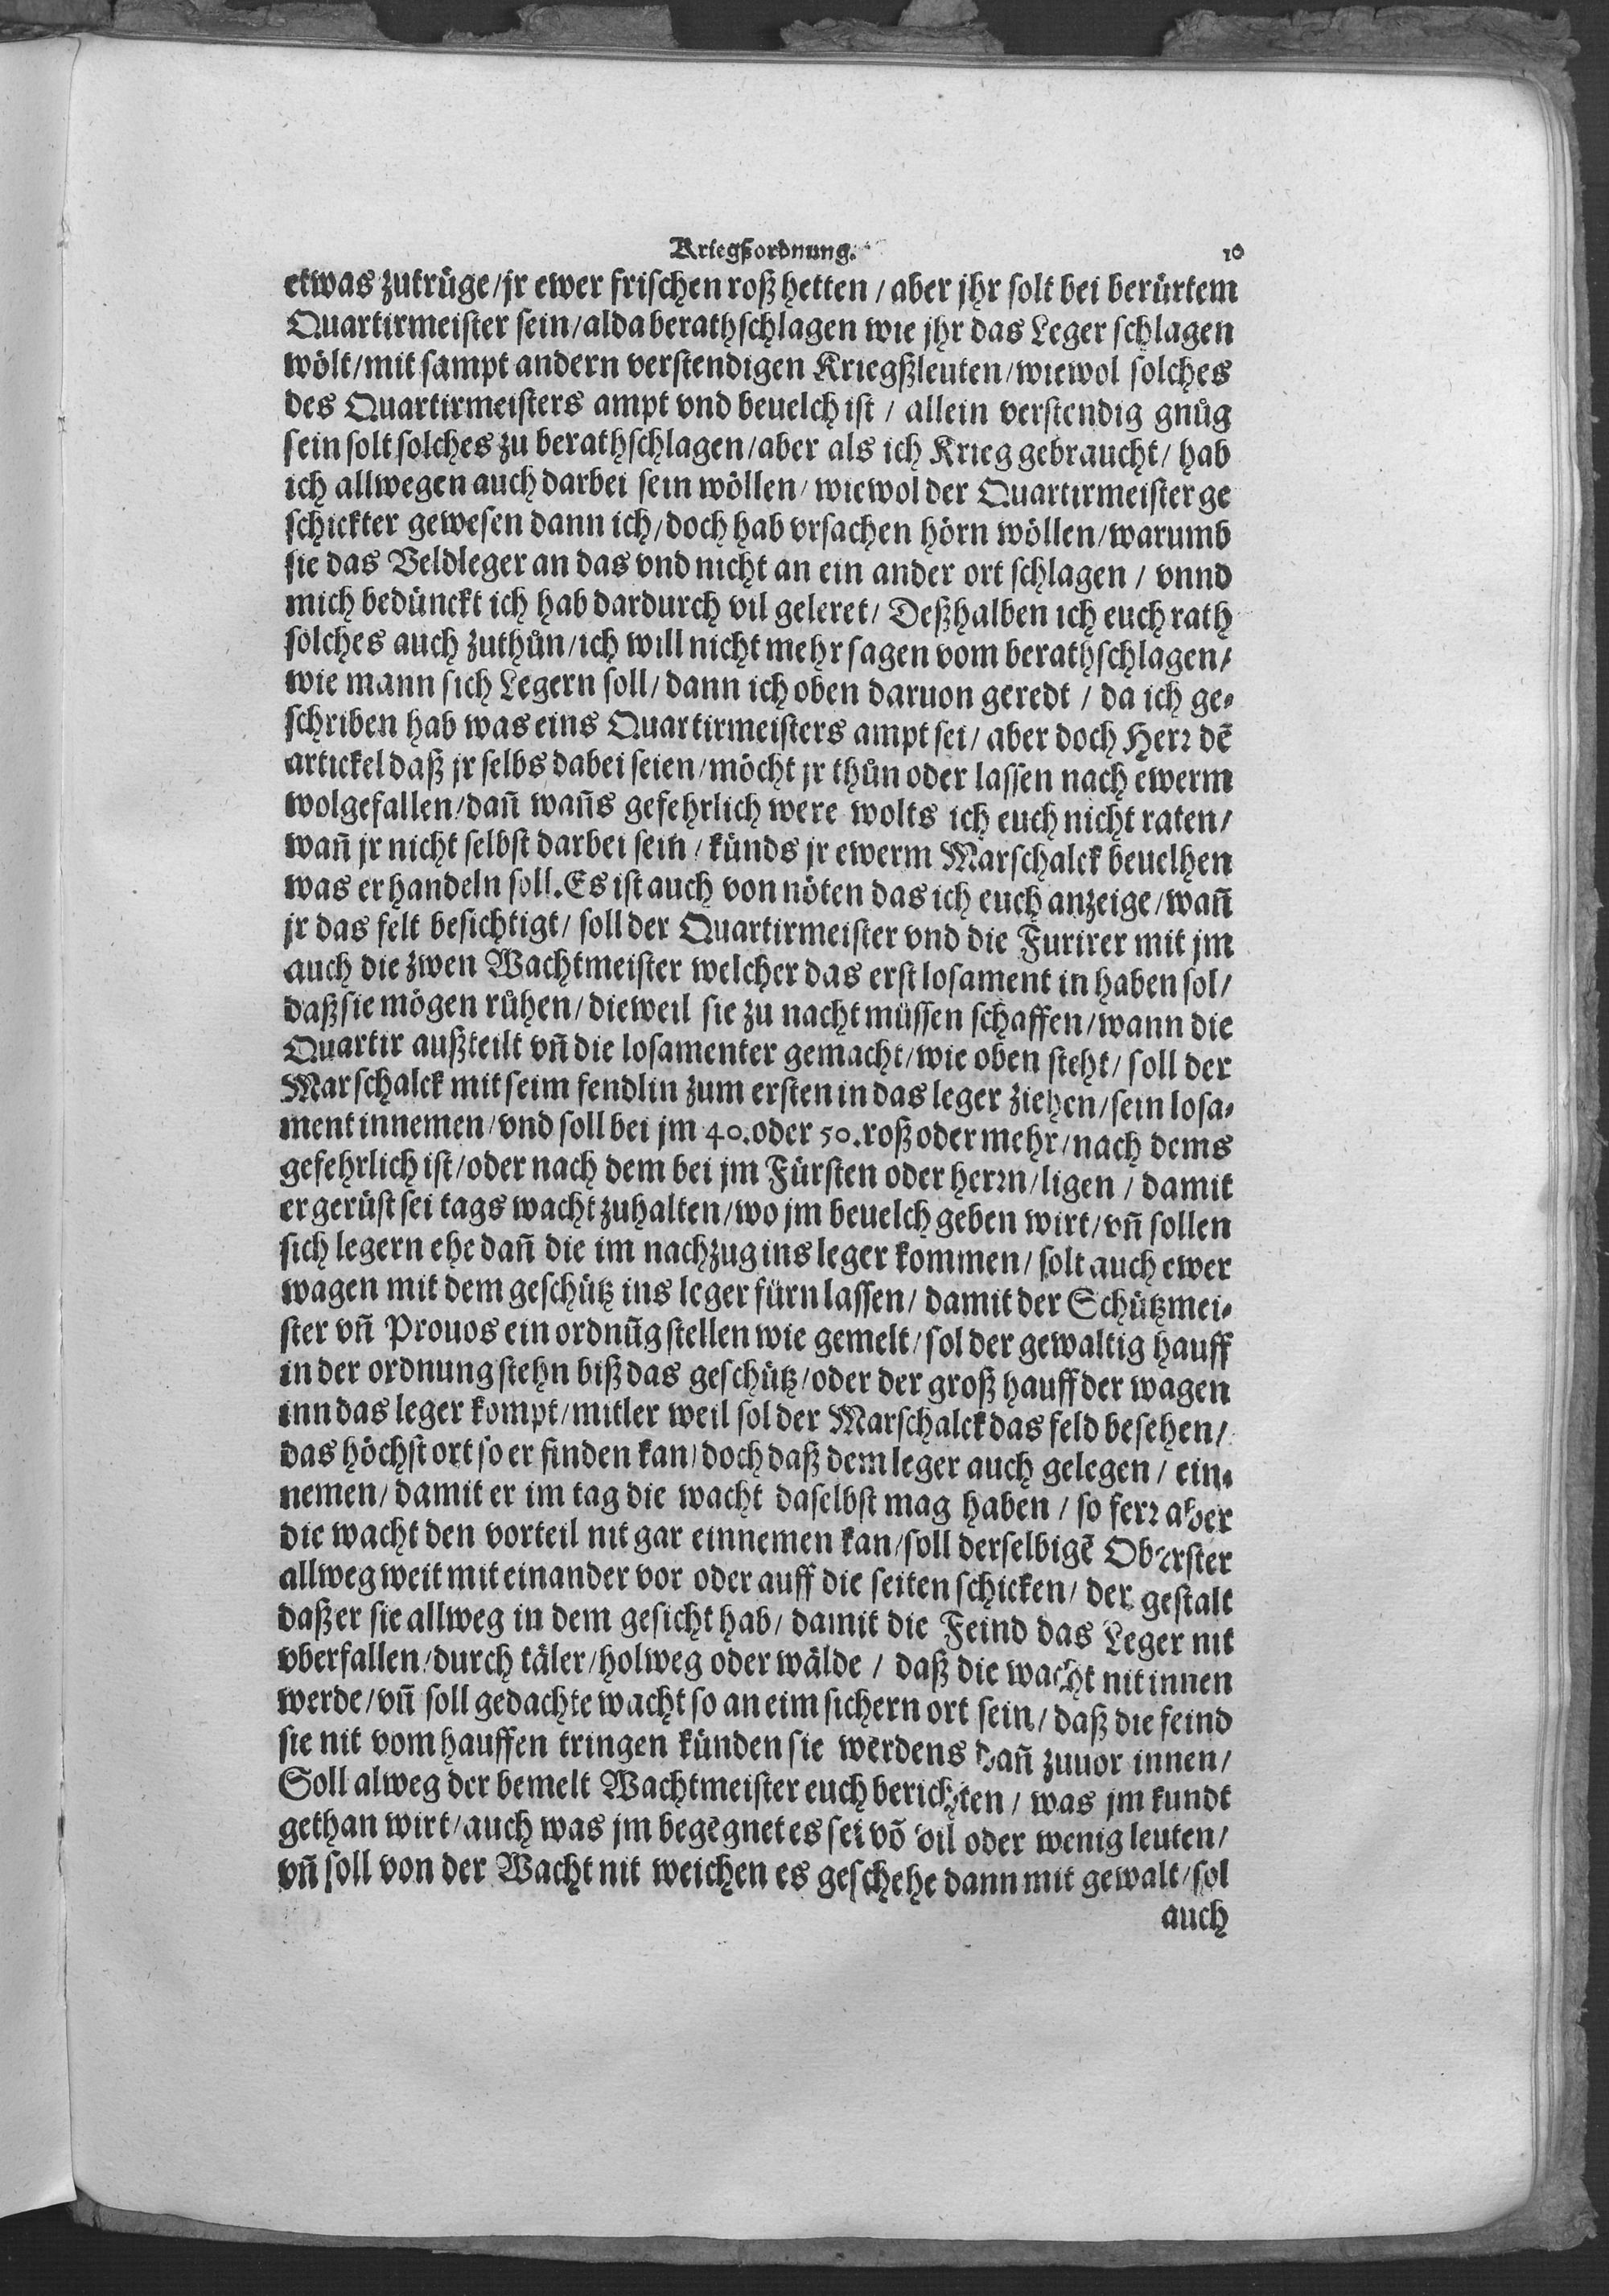 Kriegßordnung. 10
etwas zutrüge/jr ewer frischen roß hetten/ aber jhr solt bei berürtem
Quartirmeister sein/alda berathschlagen wie jhr das Leger schlagen
wölt/mit sampt andern verstendigen Kriegßleuten/wiewol solches
des Quartirmeisters ampt vnd beuelch ist/ allein verstendig gnůg
sein solt solches zu berathschlagen/aber als ich Krieg gebraucht/ hab
ich allwegen auch darbei sein wöllen/ wiewol der Quartirmeister ge
schickter gewesen dann ich/doch hab vrsachen hörn wöllen/warumb
sie das Veldleger an das vnd nicht an ein ander ort schlagen/ vnnd
mich bedünckt ich hab dardurch vil geleret/ Deßhalben ich euch rath
solches auch zuthůn/ich will nicht mehr sagen vom berathschlagen/
wie mann sich Legern soll/dann ich oben daruon geredt/ da ich ge-
schriben hab was eins Quartirmeisters ampt sei/ aber doch Herr dē
artickel daß jr selbs dabei seien/möcht jr thůn oder lassen nach ewerm
wolgefallen/dañ wañs gefehrlich were wolts ich euch nicht raten/
wañ jr nicht selbst darbei sein/ künds jr ewerm Marschalck beuelhen
was er handeln soll. Es ist auch von nöten das ich euch anzeige/wañ
jr das felt besichtigt/ soll der Quartirmeister vnd die Furirer mit jm
auch die zwen Wachtmeister welcher das erst losament in haben sol/
daß sie mögen růhen/dieweil sie zu nacht müssen schaffen/wann die
Quartir außteilt vñ die losamenter gemacht/wie oben steht/ soll der
Marschalck mit seim fendlin zum ersten in das leger ziehen/sein losa-
ment innemen/vnd soll bei jm 40. oder 50. roß oder mehr/nach dems
gefehrlich ist/oder nach dem bei jm Fürsten oder herrn/ligen/ damit
er gerüst sei tags wacht zuhalten/wo jm beuelch geben wirt/vñ sollen
sich legern ehe dañ die im nachzug ins leger kommen/ solt auch ewer
wagen mit dem geschütz ins leger fürn lassen/ damit der Schützmei-
ster vñ Prouos ein ordnũg stellen wie gemelt/ sol der gewaltig hauff
in der ordnung stehn biß das geschütz/oder der groß hauff der wagen
inn das leger kompt/mitler weil sol der Marschalck das feld besehen/
das höchst ort so er finden kan/doch daß dem leger auch gelegen/ ein-
nemen/damit er im tag die wacht daselbst mag haben/ so ferr aber
die wacht den vorteil nit gar einnemen kan/soll derselbigē Oberster
allweg weit mit einander vor oder auff die seiten schicken/ der gestalt
daß er sie allweg in dem gesicht hab/ damit die Feind das Leger nit
vberfallen/durch täler/holweg oder wälde/ daß die wacht nit innen
werde/vñ soll gedachte wacht so an eim sichern ort sein/ daß die feind
sie nit vom hauffen tringen künden sie werdens dañ zuuor innen/
Soll alweg der bemelt Wachtmeister euch berichten/ was jm kundt
gethan wirt/auch was jm begegnet es sei võ vil oder wenig leuten/
vñ soll von der Wacht nit weichen es geschehe dann mit gewalt/sol
auch